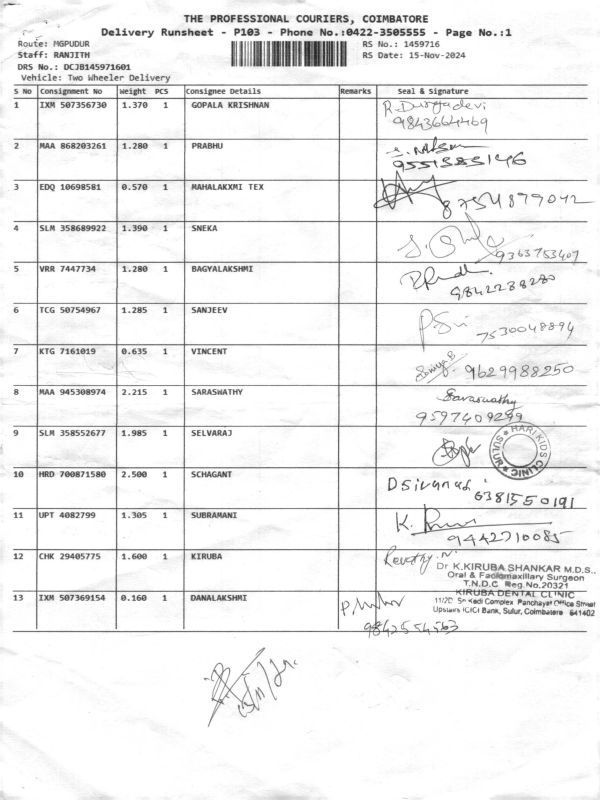 THE PROFESSIONAL COURIERS, COIMBATORE
Delivery Runsheet - P103 - Phone No.:0422-3505555 - Page No.:1
Route: MGPUDUR RS No.: 1459716
Staff: RANJITH RS Date: 15-Nov-2024
DRS No.: DCJB145971601
Vehicle: Two Wheeler Delivery
S No Consignment No Weight PCS Consignee Details Remarks Seal & signature
1 IXM 507356730 1.370 1 GOPALA KRISHNAN R. Durgadevi
9843664469
2 MAA 868203261 1.280 1 PRABHU
9551583146
3 EDQ 10698581 0.570 1 MAHALAKXMI TEX
8754879042
4 SLM 358689922 1.390 1 SNEKA
9363753407
5 VRR 7447734 1.280 1 BAGYALAKSHMI
9842238280
6 TCG 50754967 1.285 1 SANJEEV P Sri
7530048894
7 KTG 7161019 0.635 1 VINCENT 9629988250
8 MAA 945308974 2.215 1 SARASWATHY Saraswathy
9597409299
9 SLM 358552677 1.985 1 SELVARAJ HARI KIDS CLINIC SULUR
10 HRD 700871580 2.500 1 SCHAGANT
6381550191
11 UPT 4082799 1.305 1 SUBRAMANI K.
9442710085
12 CHK 29405775 1.600 1 KIRUBA Revathy. N.
Dr K.KIRUBA SHANKAR M.D.S.,
Oral & Faciomaxillary Surgeon
T.N.D.C Reg.No.20321
KIRUBA DENTAL CLINIC
11/2D Kadi Complex Panchayat Office Street
Upstairs ICICI Bank, Sulur, Coimbatore 641402
13 IXM 507369154 0.160 1 DANALAKSHMI
9842554563